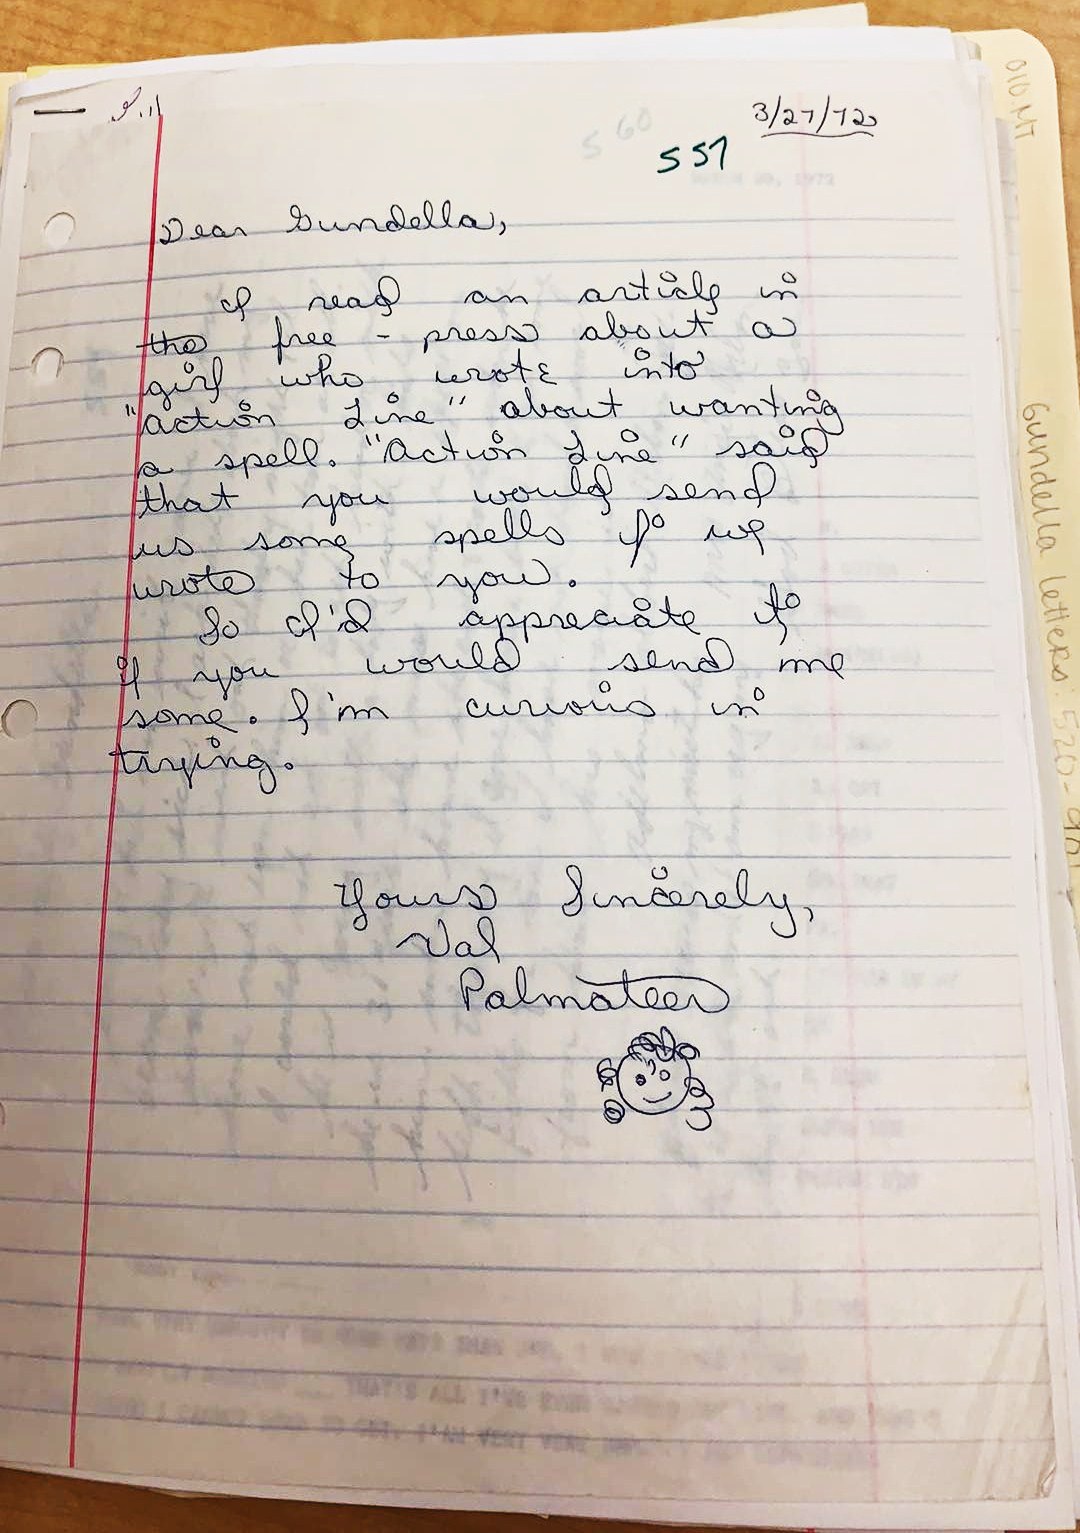 p.1
3/27/72
560
557
Dear Gundella,
I read an article in
the free - press about a
girl who wrote into
"action Line" about wanting
a spell. "Action Line" said
that you would send
us some spells if we
wrote to you.
So I'd appreciate it
if you would send me
some. I'm curious in
trying.
Yours Sincerely,
Val
Palmateer
Gundella letters: 520-